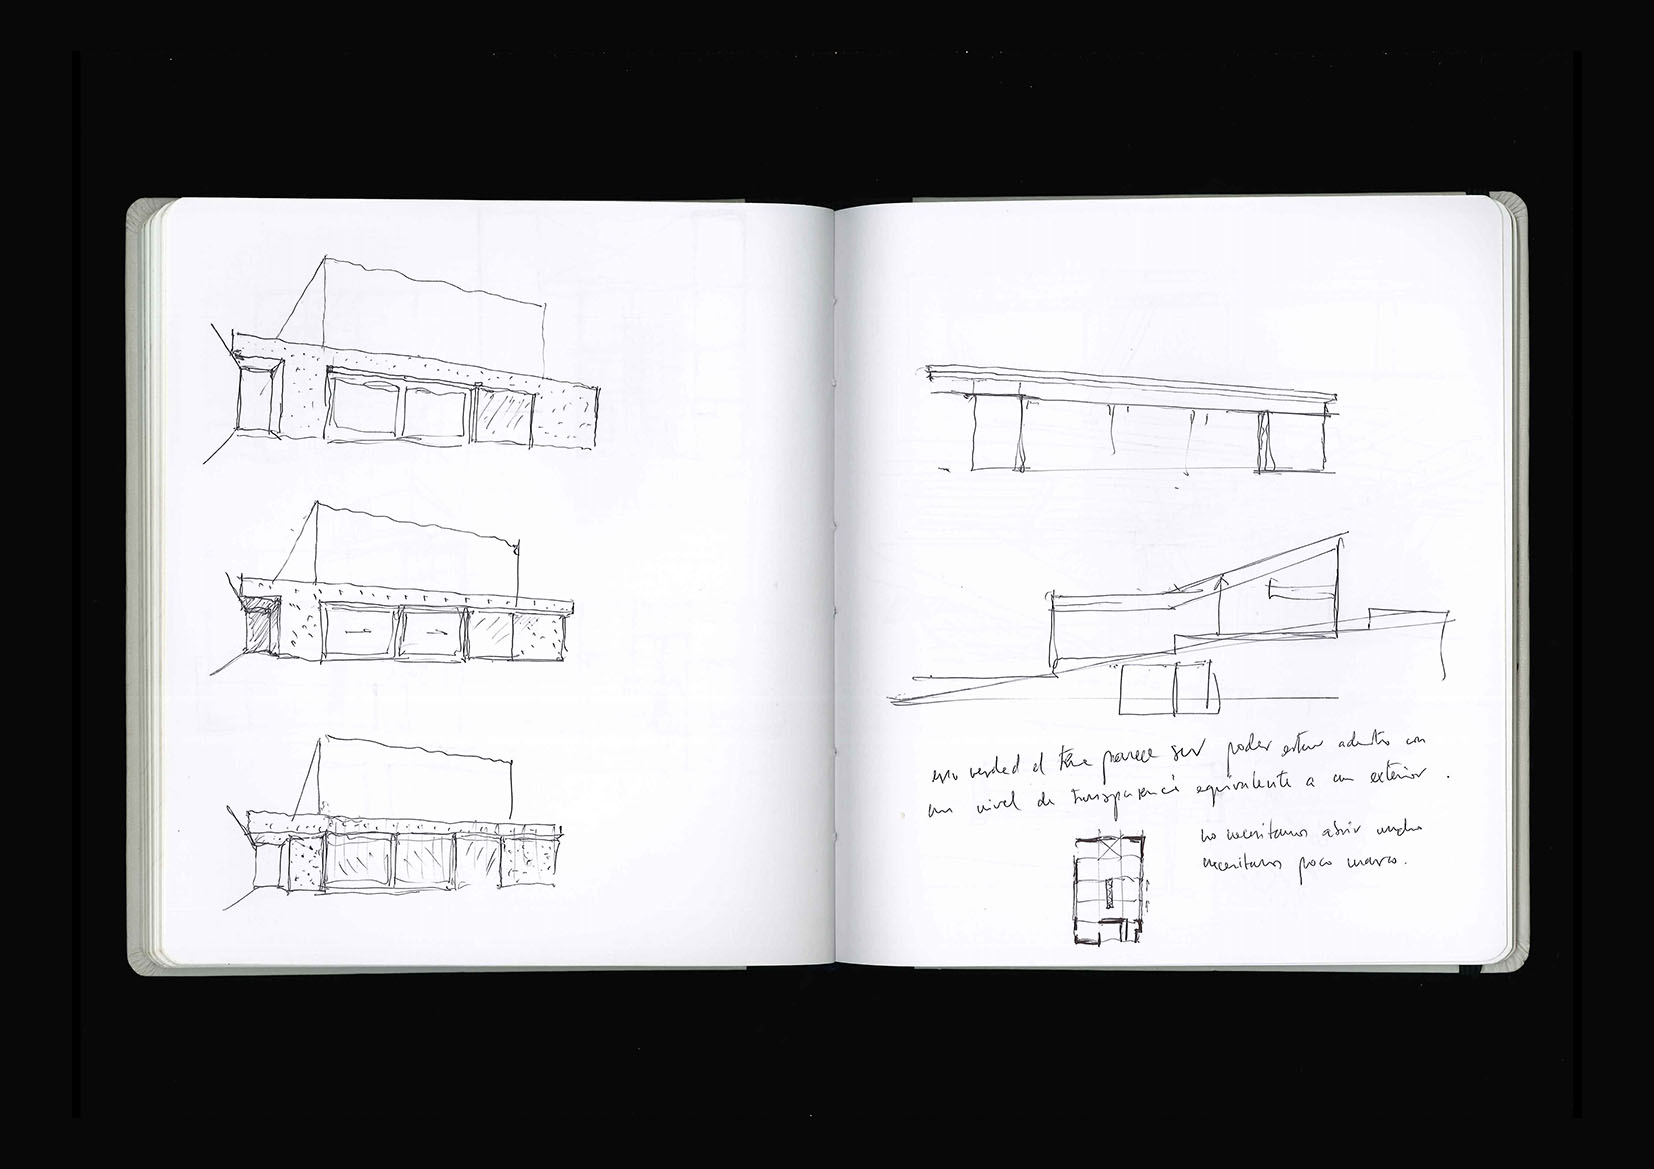 verdad el tema parece ser poder estar adentro con
un nivel de transparencia equivalente a un exterior.
no necesitamos abrir mucho
necesitamos poco marco.